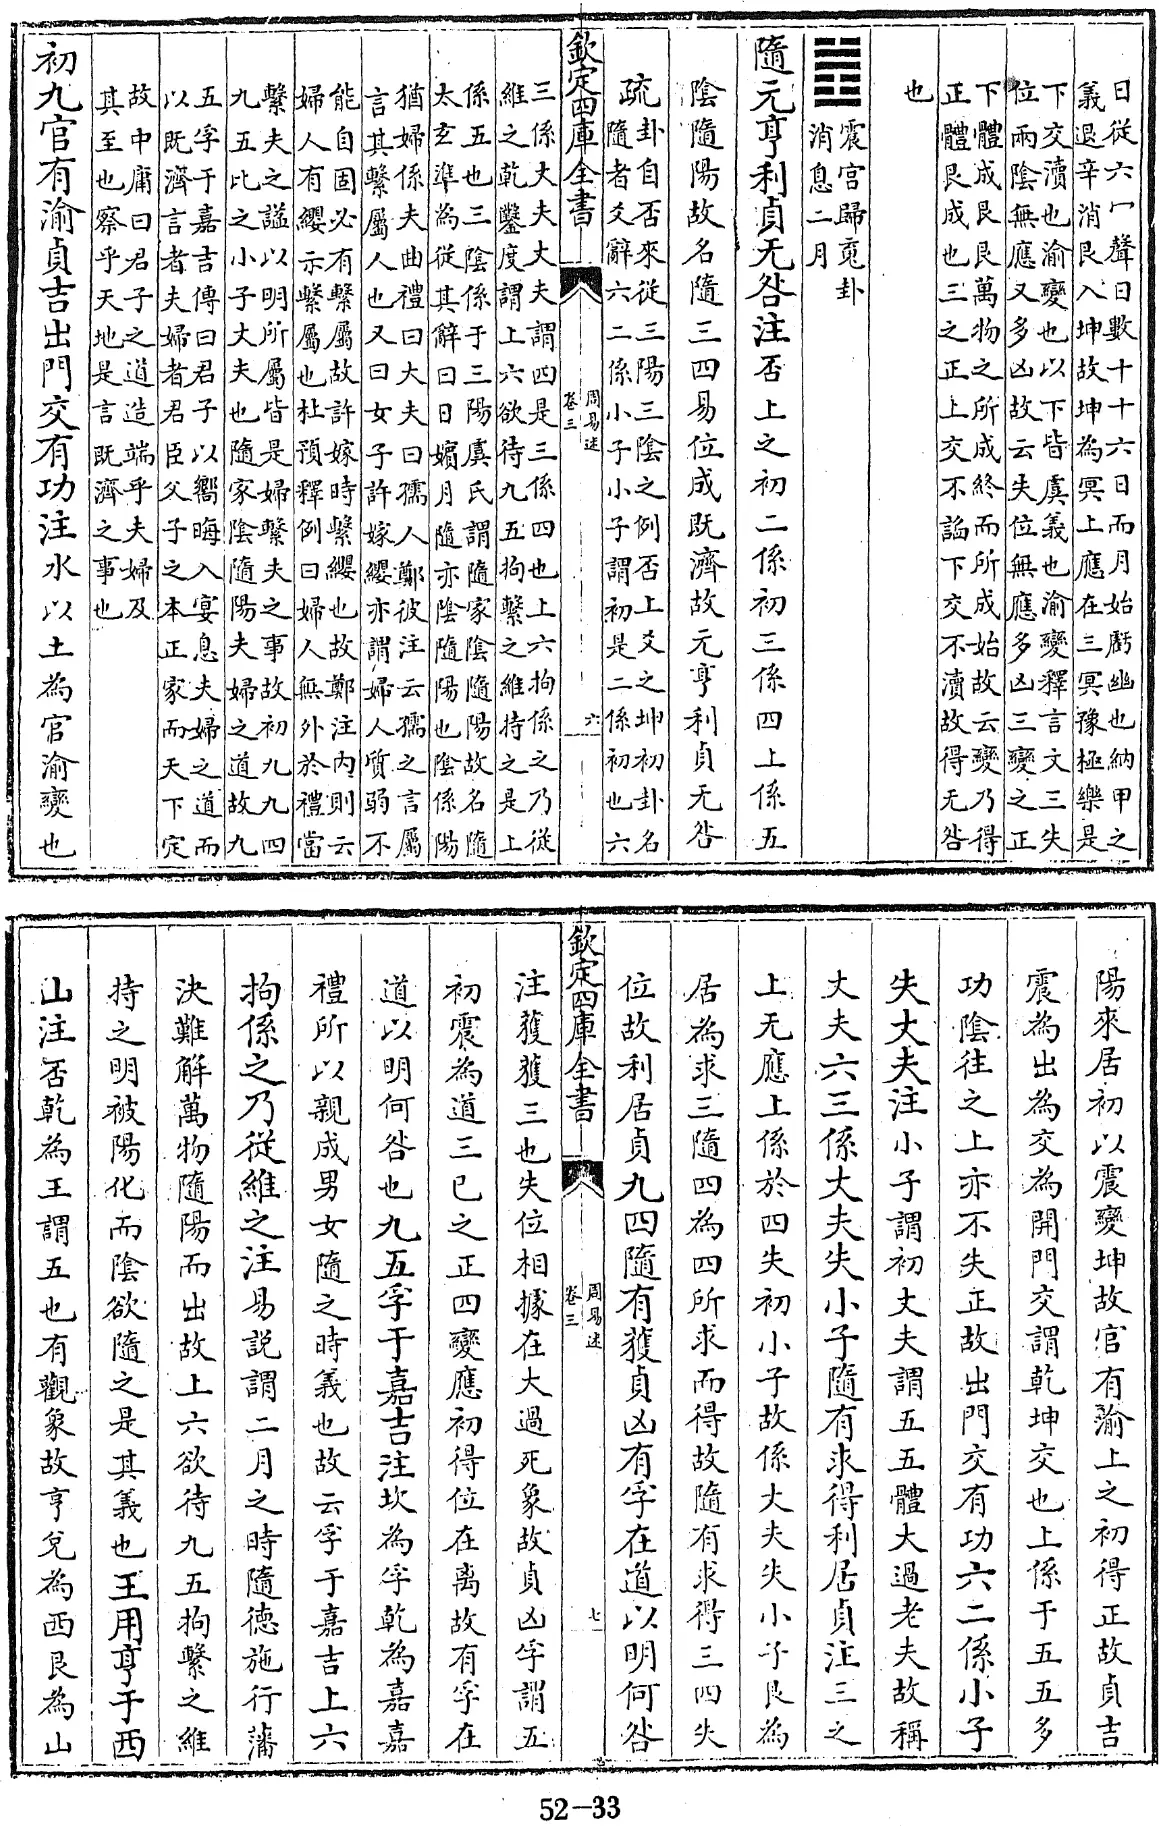 日從六冖聲日數十十六日而月始虧幽也納甲之
義退辛消艮入坤故坤為冥上應在三冥豫極樂是
下交瀆也渝變也以下皆虞義也渝變釋言文三失
位兩陰無應又多凶故云失位無應多凶三變之正
下體成艮艮萬物之所成終而所成始故云變乃得
正體艮成也三之正上交不諂下交不瀆故得无咎
也
䷐震宮歸䰟卦
消息二月
隨元亨利貞无咎注否上之初二係初三係四上係五
陰隨陽故名隨三四易位成既濟故元亨利貞无咎
疏卦自否來從三陽三陰之例否上爻之坤初卦名
隨者爻辭六二係小子小子謂初是二係初也六
欽定四庫全書
周易述
卷三
六
三係丈夫丈夫謂四是三係四也上六拘係之乃從
維之乾鑿度謂上六欲待九五拘繫之維持之是上
係五也三陰係于三陽虞氏謂隨家陰隨陽故名隨
太玄準為從其辭曰日嬪月隨亦陰隨陽也陰係陽
猶婦係夫曲禮曰大夫曰孺人鄭彼注云孺之言屬
言其繫屬人也又曰女子許嫁纓亦謂婦人質弱不
能自固必有繫屬故許嫁時繫纓也故鄭注內則云
婦人有纓示繫屬也杜預釋例曰婦人無外於禮當
繫夫之謚以明所屬皆是婦繫夫之事故初九九四
九五比之小子丈夫也隨家陰隨陽夫婦之道故九
五孚于嘉吉傳曰君子以嚮晦入宴息夫婦之道而
以既濟言者夫婦者君臣父子之本正家而天下定
故中庸曰君子之道造端乎夫婦及
其至也察乎天地是言既濟之事也
初九官有渝貞吉出門交有功注水以土為官渝變也
陽來居初以震變坤故官有渝上之初得正故貞吉
震為出為交為開門交謂乾坤交也上係于五五多
功陰往之上亦不失正故出門交有功六二係小子
失丈夫注小子謂初丈夫謂五五體大過老夫故稱
丈夫六三係丈夫失小子隨有求得利居貞注三之
上无應上係於四失初小子故係丈夫失小子艮為
居為求三隨四為四所求而得故隨有求得三四失
位故利居貞九四隨有獲貞凶有孚在道以明何咎
欽定四庫全書
周易述
卷三
七
注獲獲三也失位相據在大過死象故貞凶孚謂五
初震為道三已之正四變應初得位在离故有孚在
道以明何咎也九五孚于嘉吉注坎為孚乾為嘉嘉
禮所以親成男女隨之時義也故云孚于嘉吉上六
拘係之乃從維之注易說謂二月之時隨德施行藩
決難解萬物隨陽而出故上六欲待九五拘繫之維
持之明被陽化而陰欲隨之是其義也王用亨于西
山注否乾為王謂五也有觀象故亨兌為西艮為山
52-33